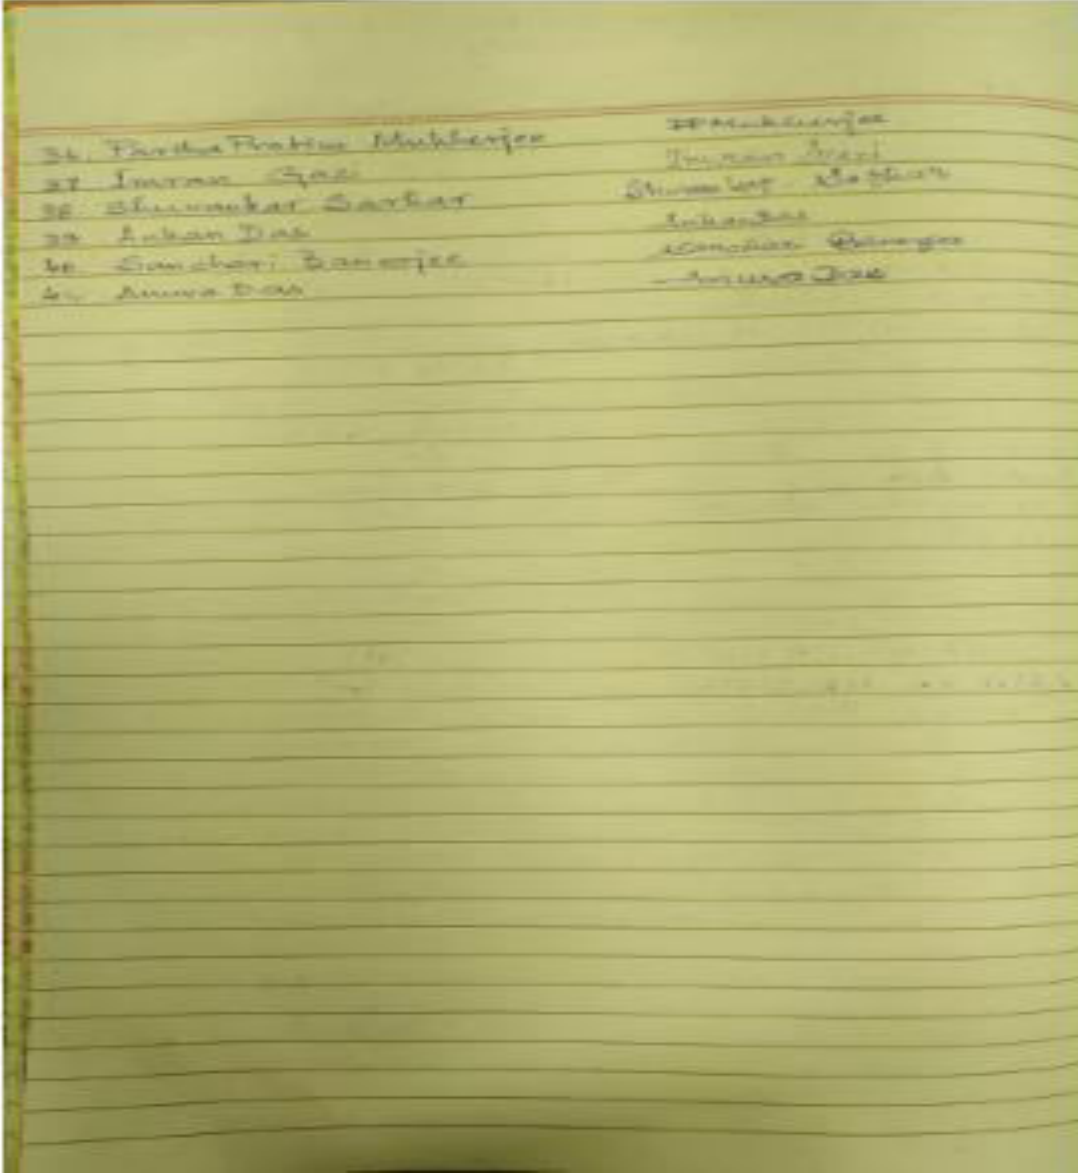 36. Partha Pratim Mukherjee PPMukherjee
37 Imran Gazi Imran Gazi
38 Shuvankar Sarkar Shuvankar Sarkar
39 Ankan Das Ankan Das
40 Sanchari Banerjee Sanchari Banerjee
41. Anuva Das Anuva Das